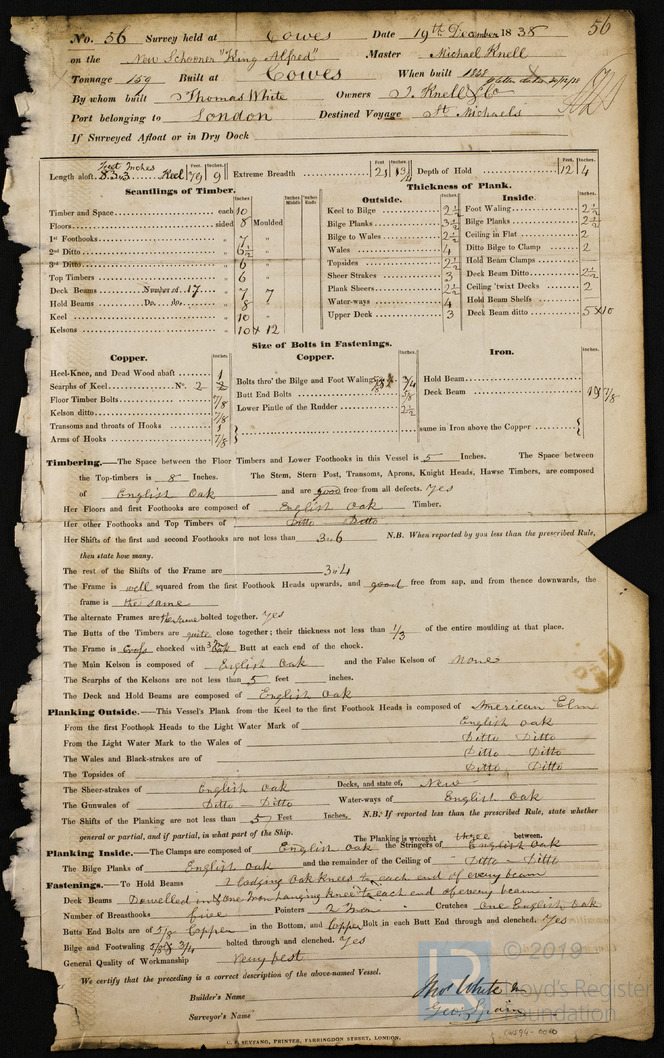 56
No. 56 Survey held at Cowes Date 19th December 1838
on the New Schooner "King Alfred" Master Michael Knell
Tonnage 159 Built at Cowes When built 1838
By whom built Thomas White Owners J. Knell & Co
Port belonging to London Destined Voyage St. Michaels
If Surveyed Afloat or in Dry Dock
Feet Inches
Length aloft Keel 79 9 Extreme Breadth 21 Depth of Hold 12 4
Scantlings of Timber. Thickness of Plank.
Outside. Inside.
Timber and Space each 10
Floors sided 8 Moulded
1st Foothooks 7
2nd Ditto 6 1/2
3rd Ditto 6
Top Timbers 6
Deck Beams Number of 17 7 7
Hold Beams Do. do. 8
Keel 10
Kelsons 10 x 12
Keel to Bilge 2 1/2
Bilge Planks 3 1/2
Bilge to Wales 2 1/2
Wales 4
Topsides 2 1/2
Sheer Strakes 3
Plank Sheers 2 1/2
Water-ways 4
Upper Deck 3
Foot Waling 2 1/2
Bilge Planks 2 1/2
Ceiling in Flat 2
Ditto Bilge to Clamp 2
Hold Beam Clamps
Deck Beam Ditto 2 1/2
Ceiling 'twixt Decks 2
Hold Beam Shelfs
Deck Beam ditto 5 x 10
Size of Bolts in Fastenings.
Copper. Copper. Iron.
Heel-Knee, and Dead Wood abaft 1
Scarphs of Keel No. 2
Floor Timber Bolts 7/8
Kelson ditto 7/8
Transoms and throats of Hooks 1
Arms of Hooks 7/8
Bolts thro' the Bilge and Foot Waling 3/4
Butt End Bolts 5/8
Lower Pintle of the Rudder 2 1/2
Hold Beam
Deck Beam 7/8
same in Iron above the Copper
Timbering.—The Space between the Floor Timbers and Lower Foothooks in this Vessel is 5 Inches. The Space between
the Top-timbers is 8 Inches. The Stem, Stern Post, Transoms, Aprons, Knight Heads, Hawse Timbers, are composed
of English Oak and are good free from all defects. Yes
Her Floors and first Foothooks are composed of English Oak Timber.
Her other Foothooks and Top Timbers of Ditto Ditto
Her Shifts of the first and second Foothooks are not less than 3.6 N.B. When reported by you less than the prescribed Rule,
then state how many.
The rest of the Shifts of the Frame are 3.4
The Frame is well squared from the first Foothook Heads upwards, and good free from sap, and from thence downwards, the
frame is the same
The alternate Frames are the same bolted together. Yes
The Butts of the Timbers are quite close together; their thickness not less than 1/3 of the entire moulding at that place.
The Frame is cross chocked with Oak Butt at each end of the chock.
The Main Kelson is composed of English Oak and the False Kelson of None
The Scarphs of the Kelsons are not less than 5 feet inches.
The Deck and Hold Beams are composed of English Oak
Planking Outside.—This Vessel's Plank from the Keel to the first Foothook Heads is composed of American Elm
From the first Foothook Heads to the Light Water Mark of English Oak
From the Light Water Mark to the Wales of Ditto Ditto
The Wales and Black-strakes are of Ditto Ditto
The Topsides of Ditto Ditto
The Sheer-strakes of English Oak Decks, and state of, New
The Gunwales of Ditto – Ditto Water-ways of English Oak
The Shifts of the Planking are not less than 5 Feet Inches. N.B. If reported less than the prescribed Rule, state whether
general or partial, and if partial, in what part of the Ship. The Planking is wrought three between.
Planking Inside.—The Clamps are composed of English Oak the Stringers of English Oak
The Bilge Planks of English Oak and the remainder of the Ceiling of Ditto – Ditto
Fastenings.—To Hold Beams 2 lodging Oak Knees to each end of every beam
Deck Beams Dowelled in & one Iron hanging knee to each end of every beam
Number of Breasthooks five Pointers 2 Iron Crutches One English Oak
Butts End Bolts are of 5/8 Copper in the Bottom, and Copper Bolt in each Butt End through and clenched. Yes
Bilge and Footwaling 3/4 bolted through and clenched. Yes
General Quality of Workmanship Very best
We certify that the preceding is a correct description of the above-named Vessel.
Builder's Name Thos White Jr
Surveyor's Name Geo. Spain
C. F. SEYFANG, PRINTER, FARRINGDON STREET, LONDON.
LR © 2019
Lloyd's Register
Foundation